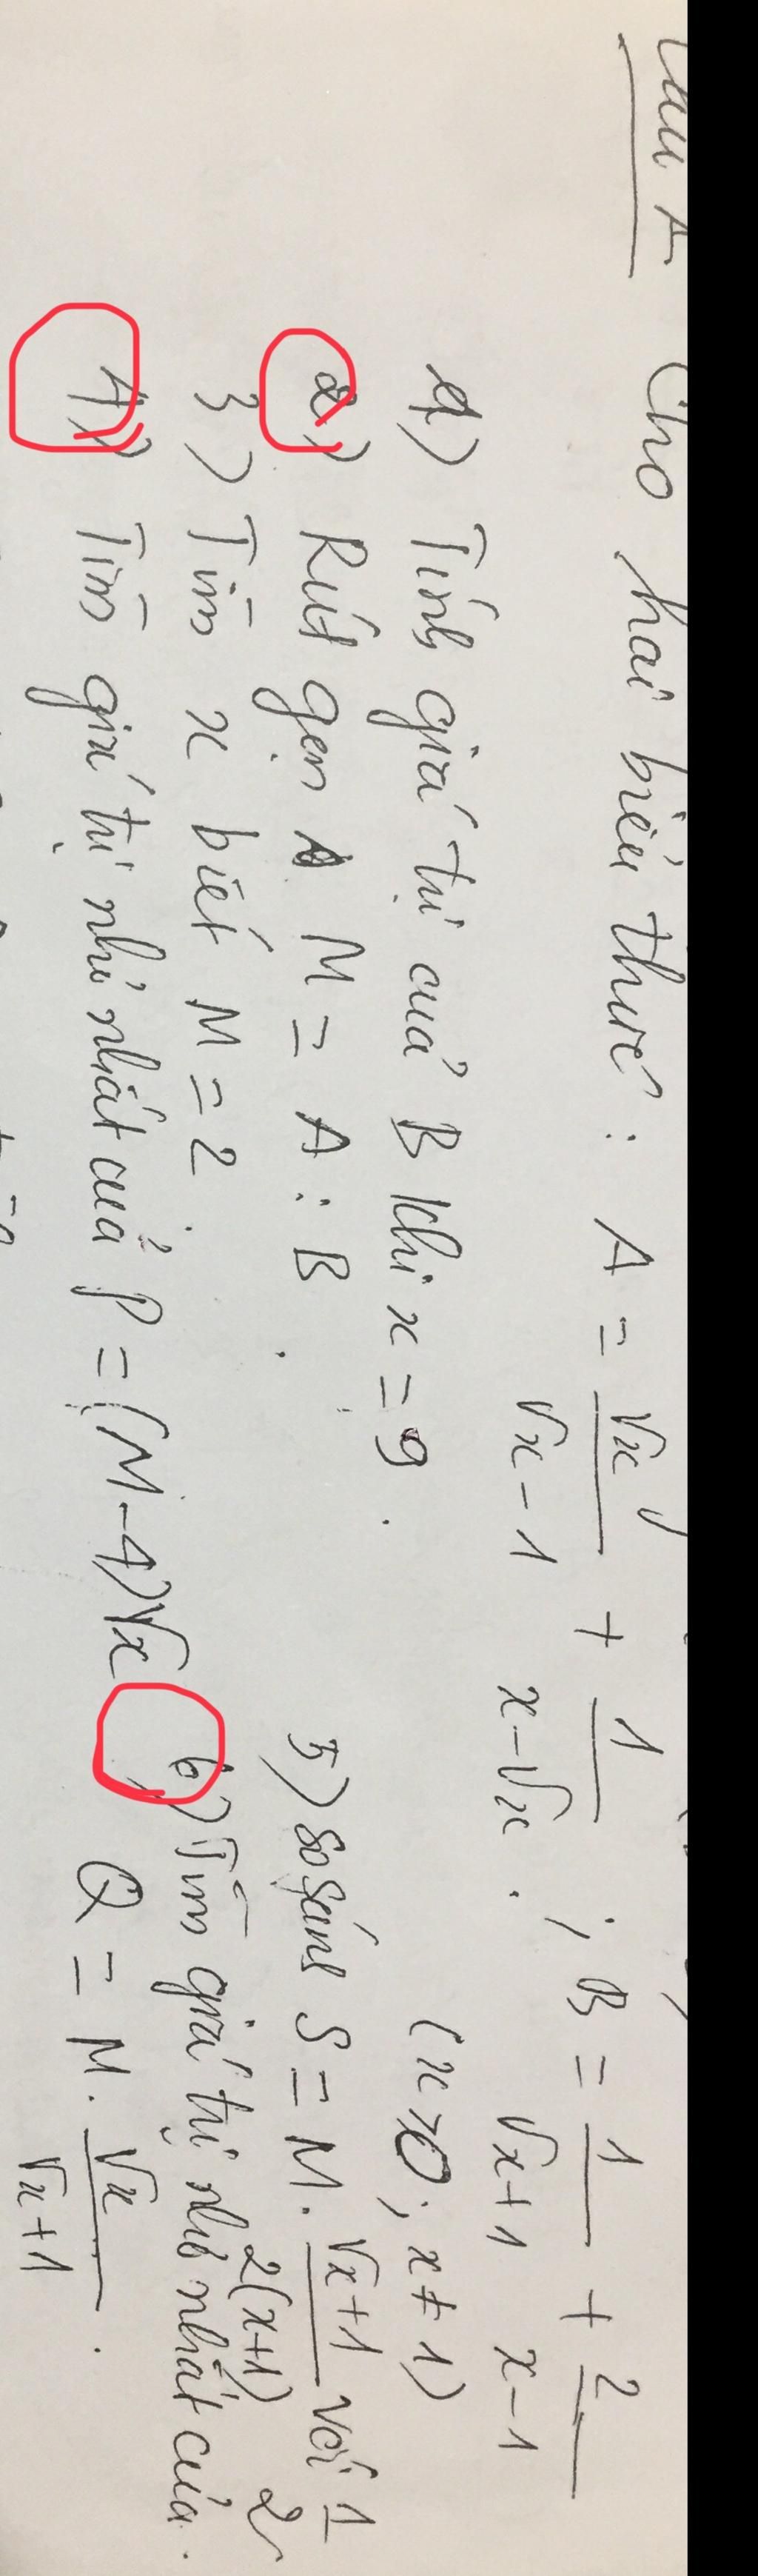 Câu 1 Cho hai biểu thức : A = √x/(√x-1) + 1/(x-√x) ; B = 1/(√x+1) + 2/(x-1)
(x>0; x≠1)
1) Tính giá trị của B khi x = 9.
2) Rút gọn M = A : B.
3) Tìm x biết M = 2.
4) Tìm giá trị nhỏ nhất của P = (M-4)√x
5) So sánh S = M. (√x+1)/(2(x+1)) với 1/2
6) Tìm giá trị nhỏ nhất của.
Q = M. √x/(√x+1).